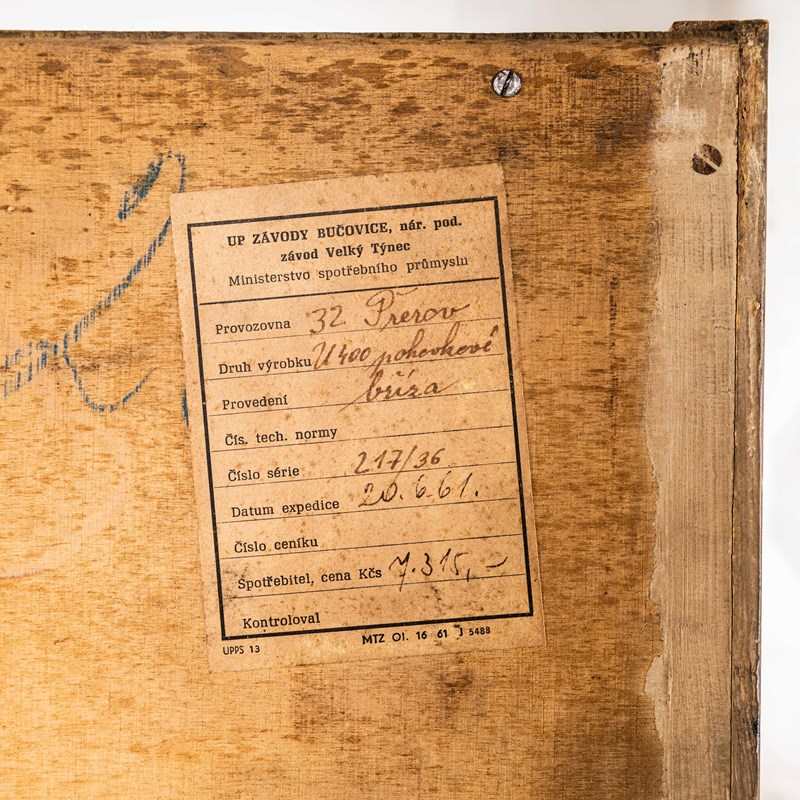 UP ZÁVODY BUČOVICE, nár. pod.
závod Velký Týnec
Ministerstvo spotřebního průmyslu
Provozovna 32 Přerov
Druh výrobku U400 pohovkové
Provedení bříza
Čís. tech. normy
Číslo série 217/36
Datum expedice 20.6.61.
Číslo ceníku
Spotřebitel, cena Kčs 7.315,–
Kontroloval
UPPS 13 MTZ Ol. 16 61 J 5488